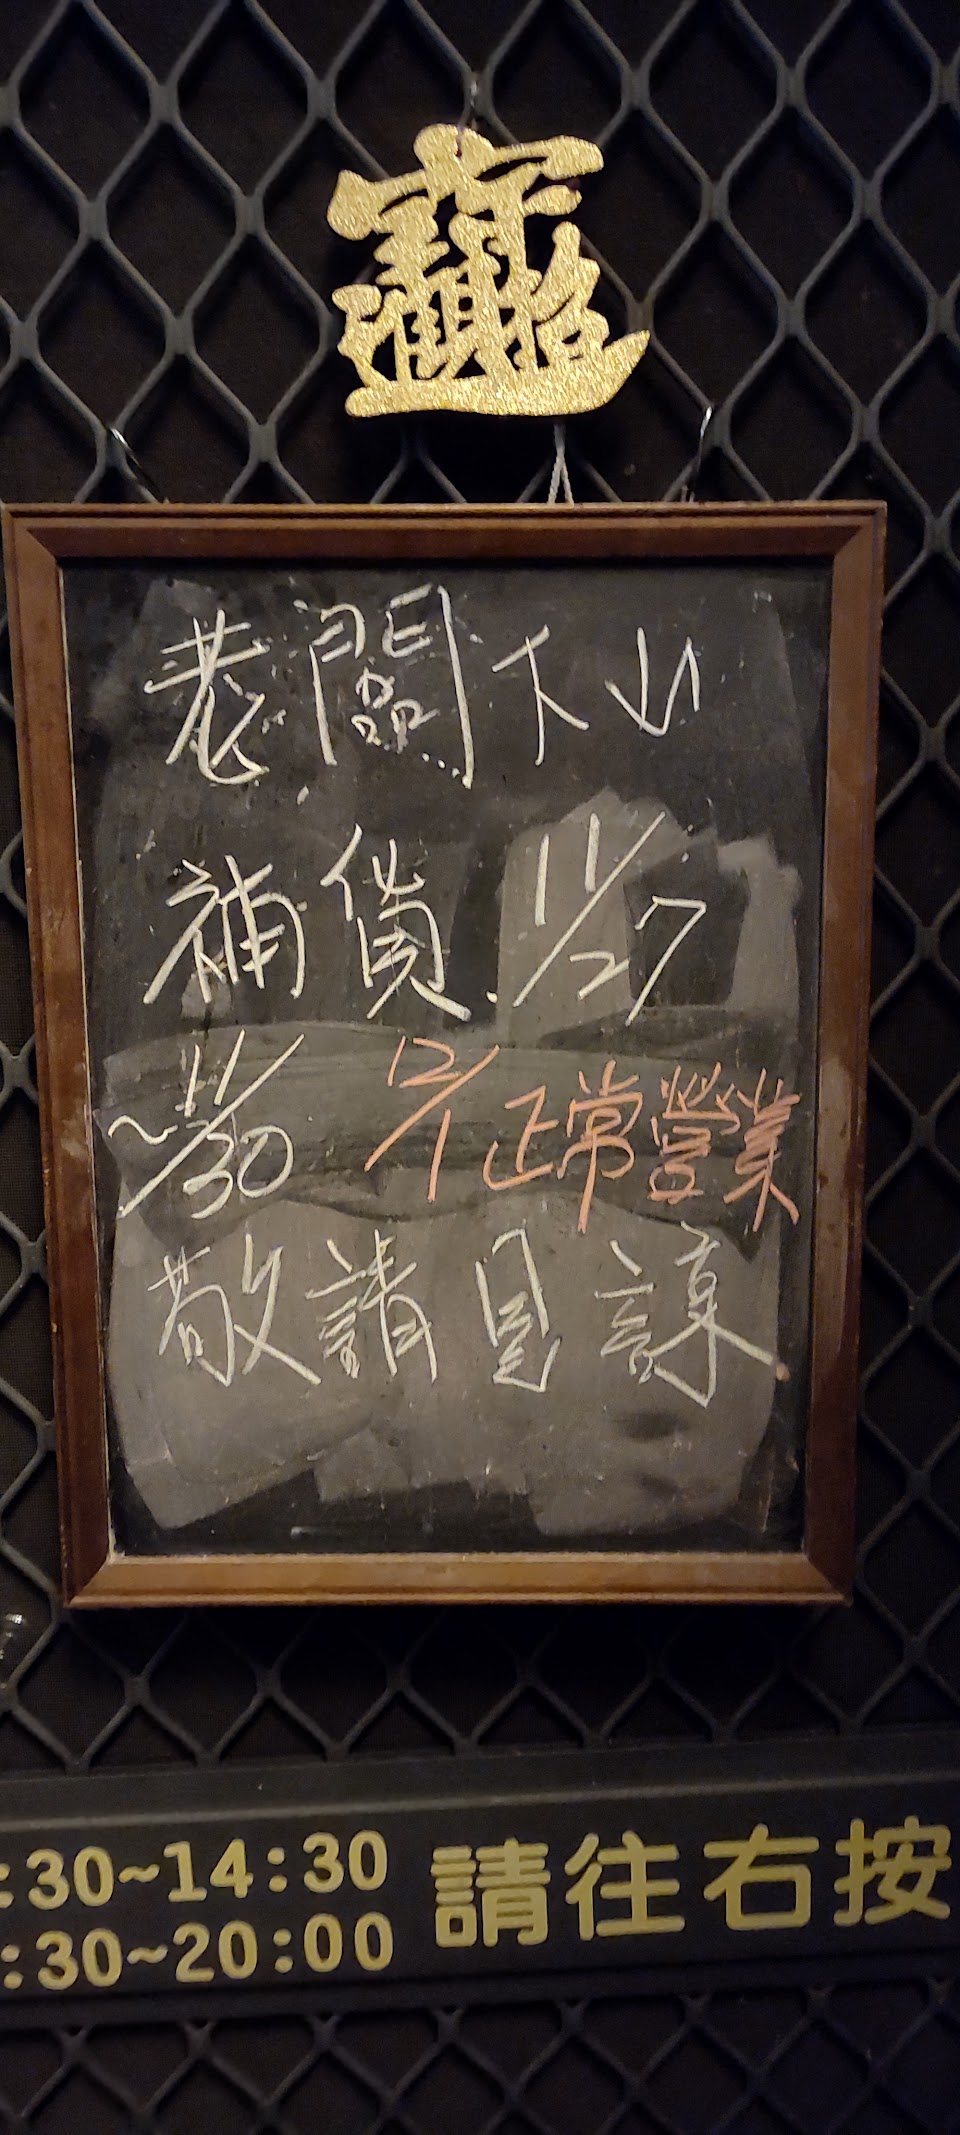 招財進寶
老闆下山
補貨 11/27
~11/30 12/1正常營業
敬請見諒
:30~14:30 請往右按
:30~20:00